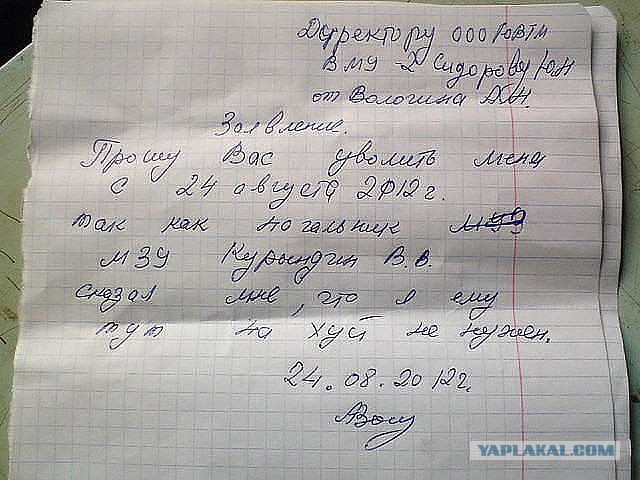 Директору ООО ЮВТМ
ВМУ-2 Сидорову Ю.Н
от Вологина А.Н.
Заявление.
Прошу Вас уволить меня
с 24 августа 2012г.
так как начальник
МЗУ Курындин В.В.
сказал мне, что я ему
тут на хуй не нужен.
24.08.2012г.
YAPLAKAL.COM